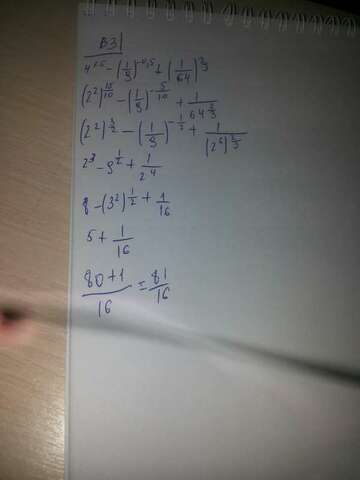 B31
4^{1,5} - (1/9)^{-0,5} + (1/64)^{2/3}
(2^2)^{15/10} - (1/9)^{-5/10} + 1/64^{2/3}
(2^2)^{3/2} - (1/9)^{-1/2} + 1/(2^6)^{2/3}
2^3 - 9^{1/2} + 1/2^4
8 - (3^2)^{1/2} + 1/16
5 + 1/16
80+1/16 = 81/16